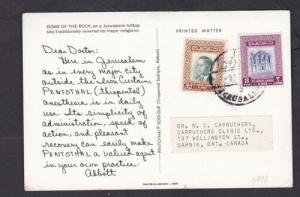 DOME OF THE ROCK on a Jerusalem hilltop
site traditionally revered by major religions.
PRINTED MATTER
Dear Doctor:
Here in Jerusalem
as in every major city
outside the Iron Curtain,
PENTOTHAL (thiopental)
anesthesia is in daily
use. Its simplicity of
administration, speed of
action, and pleasant
recovery can easily make
PENTOTHAL a valued agent
in your own practice.
Abbott
PENTOTHAL® SODIUM (Thiopental Sodium, Abbott)
JERUSALEM
DR. N. C. CARRUTHERS
CARRUTHERS CLINIC LTD.,
137 WELLINGTON ST.,
SARNIA, ONT., CANADA